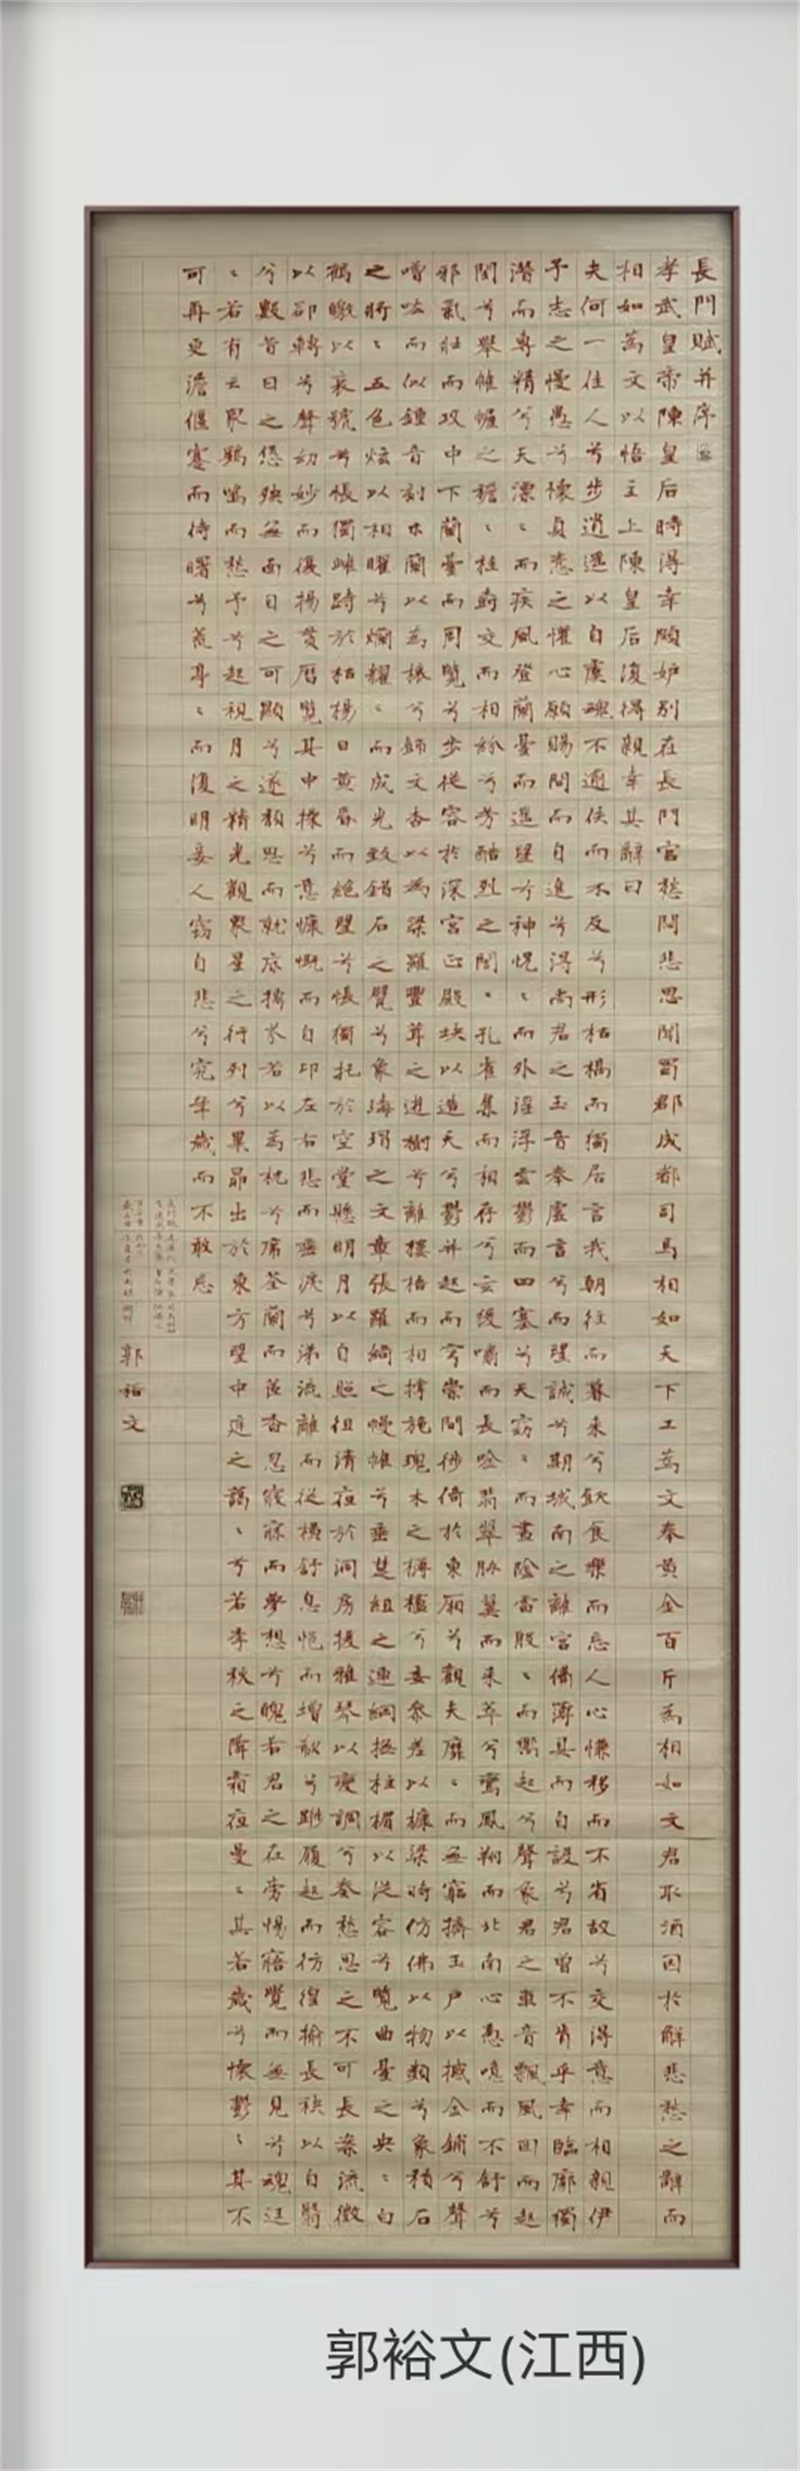 長門賦并序
孝武皇帝陳皇后時得幸頗妒別在長門宮愁悶悲思聞蜀郡成都司馬相如天下工為文奉黃金百斤為相如文君取酒因於解悲愁之辭而
相如為文以悟主上陳皇后復得親幸其辭曰
夫何一佳人兮步逍遙以自虞魂不逾佚而不反兮形枯槁而獨居言我朝往而暮來兮飲食樂而忘人心慊移而不省故兮交得意而相親伊
予志之慢愚兮懷貞慤之懽心願賜問而自進兮得尚君之玉音奉虛言兮而望誠兮期城南之離宮脩薄具而自設兮君曾不肯乎幸臨廓獨
潛而專精兮天漂〻而疾風登蘭臺而遙望兮神怳〻而外淫浮雲鬱而四塞兮天窈〻而晝陰雷殷〻而響起兮聲象君之車音飄風回而起
閨兮舉帷幄之襜〻桂樹交而相紛兮芳酷烈之誾〻孔雀集而相存兮玄猨嘯而長吟翡翠脅翼而來萃兮鸞鳳翔而北南心憑噫而不舒兮
邪氣壯而攻中下蘭臺而周覽兮步從容於深宮正殿塊以造天兮鬱并起而穹崇間徙倚於東廂兮觀夫靡〻而無窮擠玉戶以撼金鋪兮聲
噌吰而似鍾音刻木蘭以為榱兮飾文杏以為梁羅豐茸之遊樹兮離樓梧而相撐施瑰木之欂櫨兮委參差以槺梁時仿佛以物類兮象積石
之將〻五色炫以相曜兮爛耀〻而成光致錯石之甓兮象瑇瑁之文章張羅綺之幔帷兮垂楚組之連綱撫柱楣以從容兮覽曲臺之央〻白
鶴噭以哀號兮悵獨雌跱於枯楊日黃昏而絕望兮悵獨托於空堂懸明月以自照兮徂清夜於洞房援雅琴以變調兮奏愁思之不可長案流徵
以卻轉兮聲幼妙而復揚貫歷覽其中操兮意慷慨而自卬左右悲而垂淚兮涕流離而從橫舒息悒而增欷兮蹝履起而彷徨揄長袂以自翳
兮數昔日之愆殃無面目之可顯兮遂頹思而就床摶芬若以為枕兮席荃蘭而茝香忽寢寐而夢想兮魄若君之在旁惕寤覺而無見兮魂迋
〻若有亡眾雞鳴而愁予兮起視月之精光觀眾星之行列兮畢昴出於東方望中庭之藹〻兮若季秋之降霜夜曼〻其若歲兮懷鬱〻其不
可再更澹偃蹇而待曙兮荒亭〻而復明妾人竊自悲兮究年歲而不敢忘
郭裕文
郭裕文(江西)